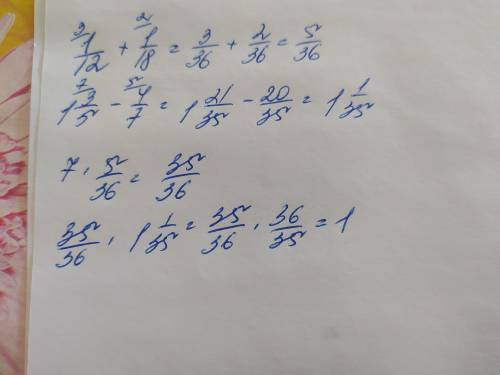 3 2
1/12 + 1/18 = 3/36 + 2/36 = 5/36
7 5
1 3/5 - 4/7 = 1 21/35 - 20/35 = 1 1/35
7 · 5/36 = 35/36
35/36 · 1 1/35 = 35/36 · 36/35 = 1